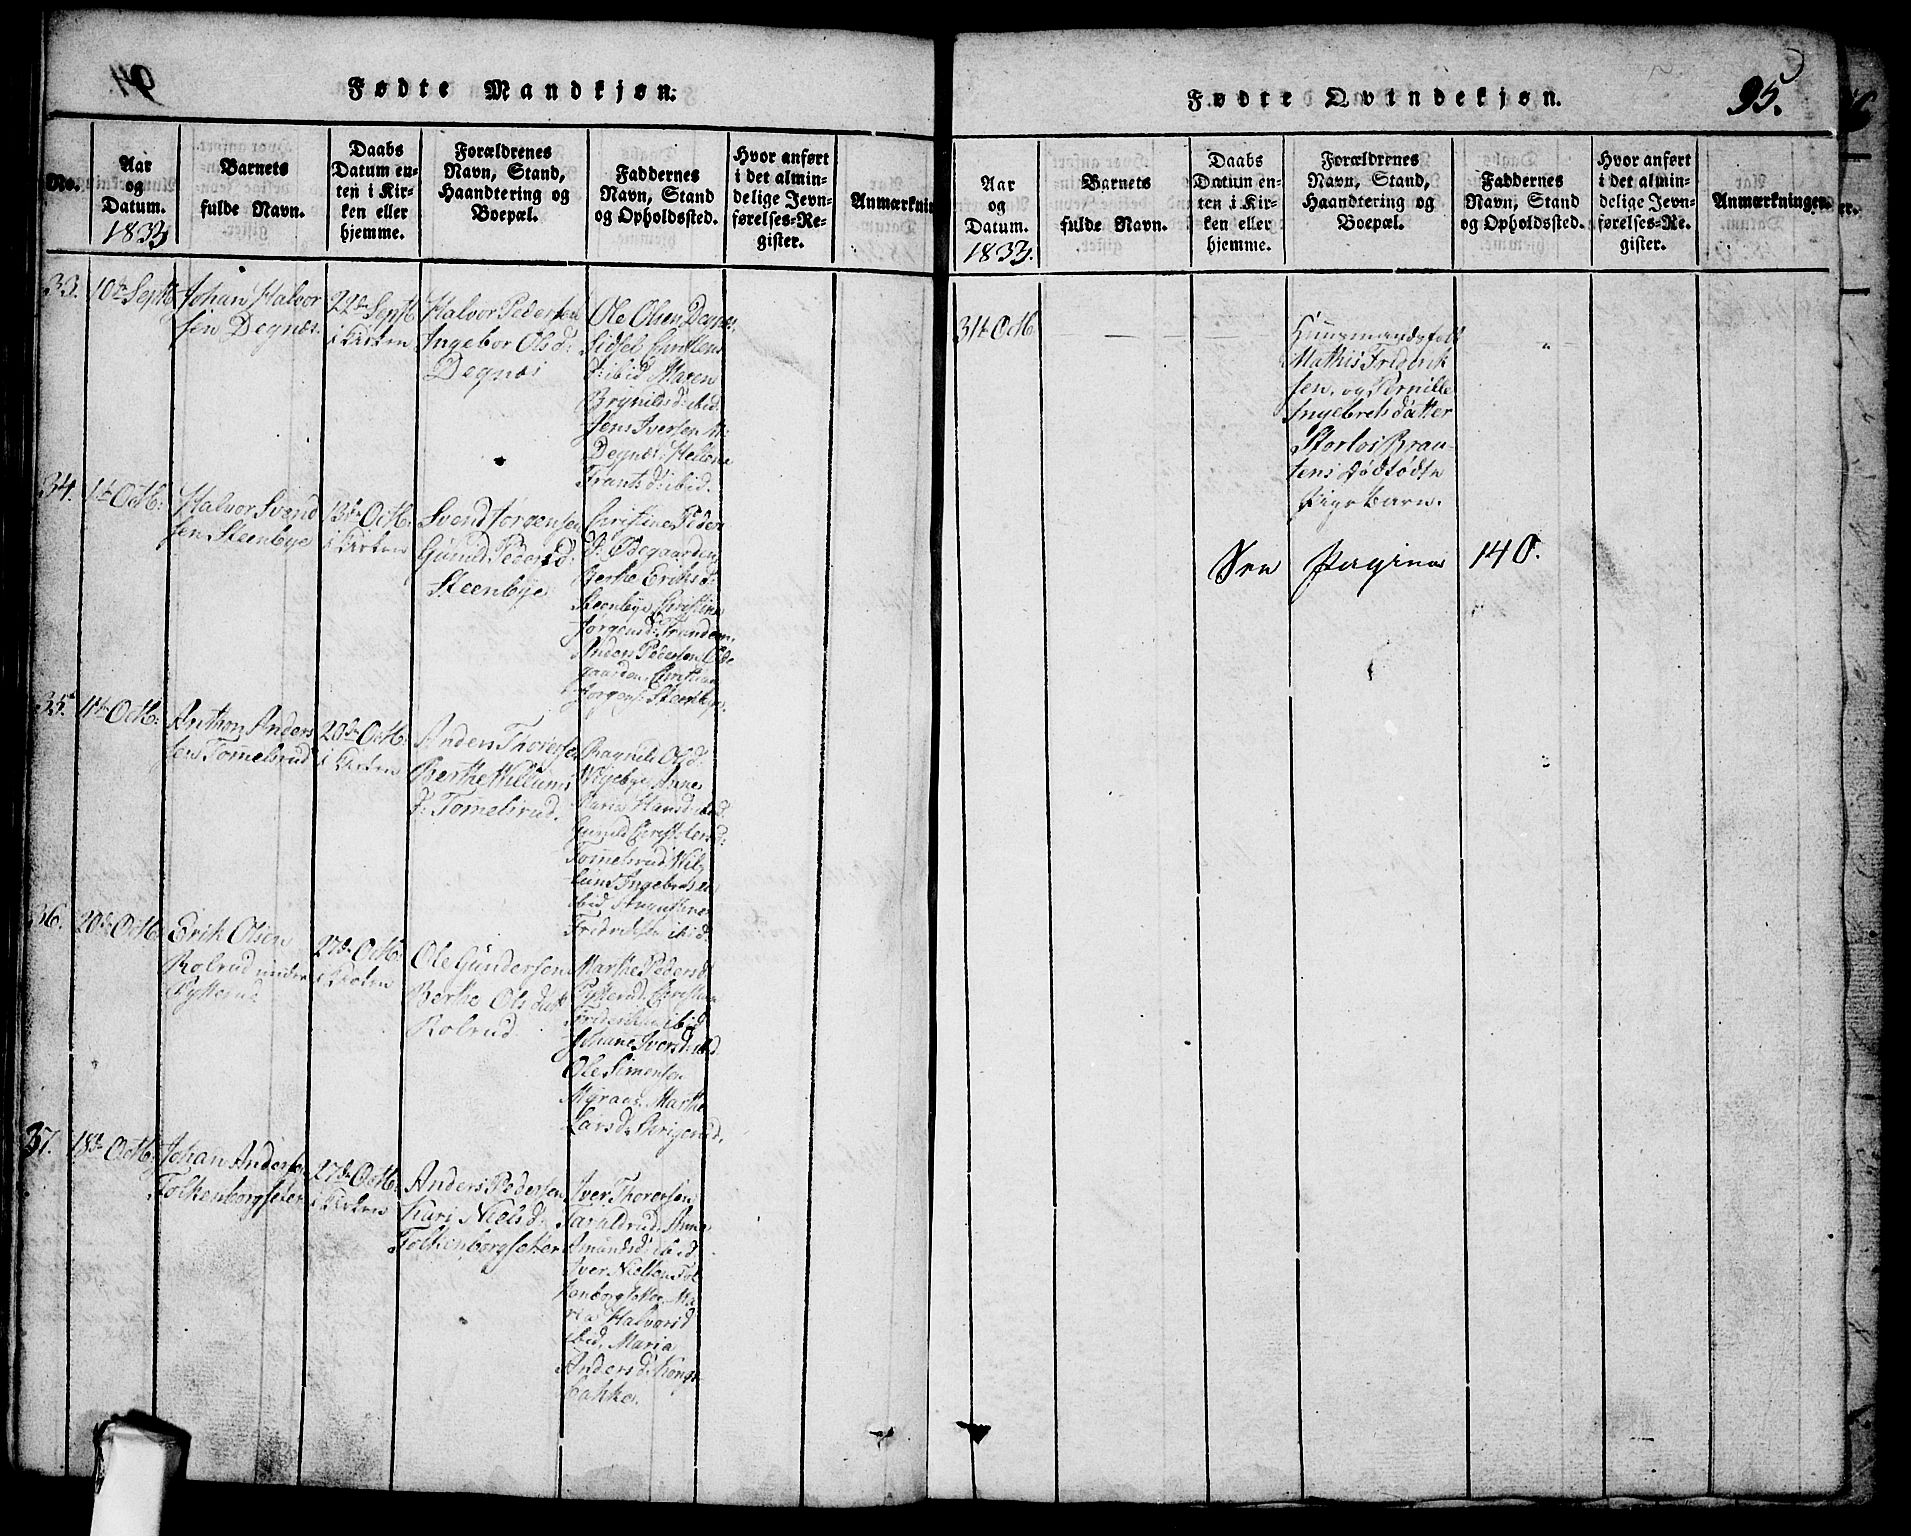 Fødte Mandkjøn.
No.
Aar
og
Datum.
1833
Barnets
fulde Navn.
Daabs
Datum en-
ten i Kir-
ken eller
hjemme.
Forældrenes
Navn, Stand,
Haandtering og
Boepæl.
Faddernes
Navn, Stand
og Opholdssted.
Hvor anført
i det almin-
delige Jevn-
førelses-Re-
gister.
Anmærknin
33.
10de Septb
Johan Halvor
sen Degnæs.
22de Septb
i Kirken
Halvor Pedersen
Ingebor Olsd:
Degnæs
Ole Olsen Degnæs
Sidsel
d: ibid Maren
Brynilds d: ibid
Jens Iversen
Degnæs, Helene
Frants d: ibid.
34.
1te Octb:
Halvor Svend
sen Steenbye
13de Octb.
i Kirken
Svend Jörgensen
Gunild Pedersd:
Steenbye
Christine Peder
d: Ødegaarden,
Berthe Eriks d:
Steenbye, Christine
Jörgensd:
Anders Pedersen Öde
gaarden, Christian
Jörgens: Steenbye.
35.
4te Octb:
Anthon Anders
sen Tomelsrud
20de Octb:
i Kirken
Anders Thoresen
Berthe Willums
d: Tomelsrud.
Ragnild Olsd:
Anne
Maria Hansd: ibid.
Gunild Christofersd:
Tomelsrud, Wil-
lum Ingebretsen
ibid
Fredriksen ibid.
36.
20de Octb:
Erik Olsen
Rolrud under
Rytterud
27de Octb:
i Kirken
Ole Gundersen
Berthe Olsdatt
Rolrud
Marthe Pedersd
Rytterud, Christian
Frederiksen ibid
Johane Iversd: ibid
Ole Simensen
Myraas. Marthe
Larsd:
37.
18de Octb:
Johan Andersen
Folkenborgseter
27de Octb:
i Kirken
Anders Pedersen
Kari Nielsd:
Folkenborgsetter
Iver Thoresen
Taraldrud, Anne
Amunds d: ibid
Iver Nielsen Fol
kenborgsetter, Ma
ria Halvorsd
ibid, Maria
Anders d: Kongs
bakke.
Fødte Qvindekjøn.
95.
Aar
og
Datum.
1833.
Barnets
fulde Navn.
Daabs
Datum en-
ten i Kir-
ken eller
hjemme.
Forældrenes
Navn, Stand,
Haandtering og
Boepæl.
Faddernes
Navn, Stand
og Opholdssted.
Hvor anført
i det almin-
delige Jevn-
førelses-Re-
gister.
Anmærkninger.
31te Octb
Huusmandsfolk
Mathis Frederik
sen, og Pernille
Ingebretsdatter
Storlos Braa-
tens dødfødte
Pige Barn.
See Pagina 140.